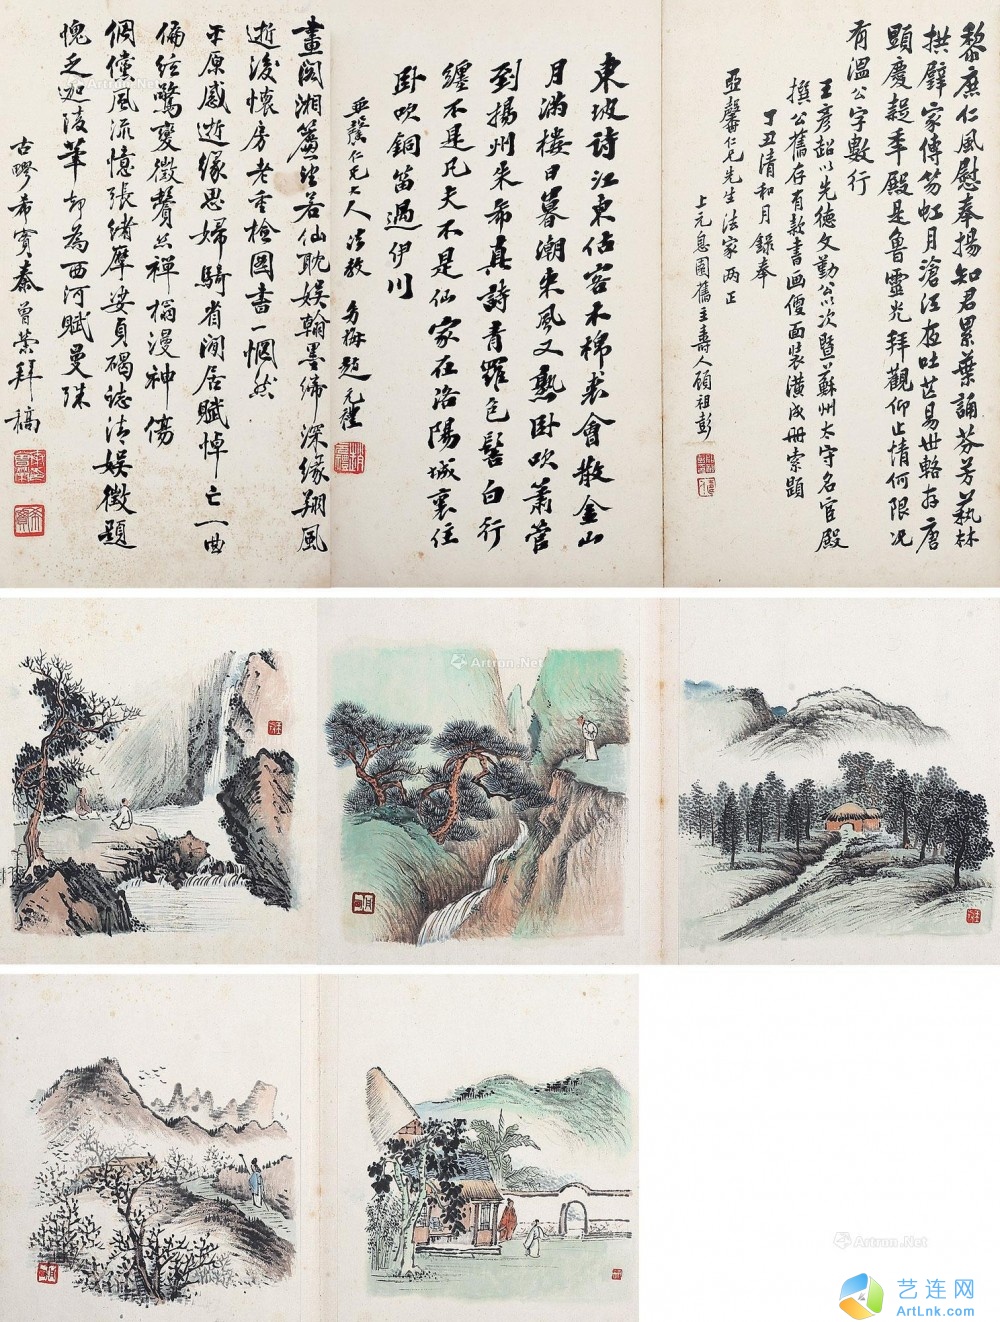 黎庶仁風慰奉揚知君累葉誦芬芳藝林
拱璧家傳笏虹月滄江夜吐芒易世輅存唐
顯慶殿是魯靈光拜觀仰止情何限況
有溫公字數行
王彥超以先德文勤公以次暨蘇州太守名宦殿
撰公舊存有款書画便面裝潢成冊索題
丁丑清和月錄奉
亞馨仁兄先生法家兩正
上元息園舊主壽人顧祖彭
東坡詩江東估客木棉裘會散金山
月滿樓日暮潮來風又熟卧吹簫管
到揚州朱希真詩青羅包髻白行
纏不是凡夫不是仙家在洛陽城裏住
卧吹銅笛過伊川
亞馨仁兄大人法教 元禮
畫閣湘簾望若仙耽娛翰墨締深緣翔風
逝後懷房老重檢圖書一惘然
平原感逝緣思婦騎省閒居賦悼亡一曲
偏絃驚變徵鬢絲禪榻漫神傷
倜儻風流憶張緒摩挲貞碣誌清娛徵題
愧乏迦陵筆却為西河賦曼殊
古鄮希實秦曾榮拜稿
Artron.Net
Artron.Net
Artron.Net
艺连网
ArtLnk.com